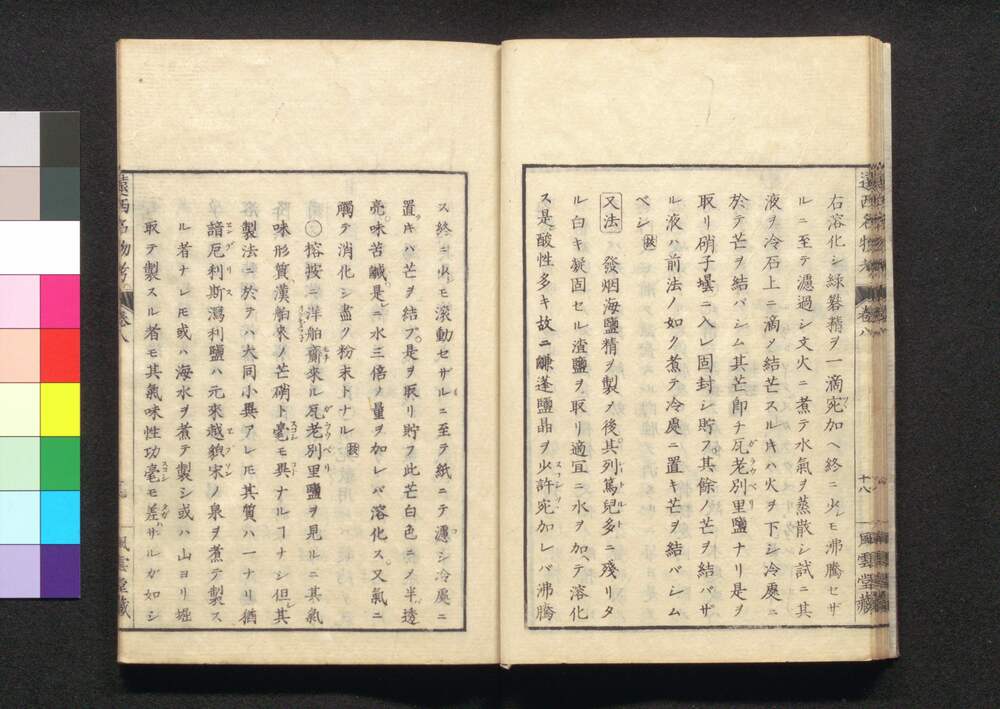 遠西名物考 卷八 十八 風雲堂藏
右溶化シ緑礬精ヲ一滴宛加ヘ終ニ少レモ沸騰セザ
ルニ至テ濾過シ文火ニ煮テ水氣ヲ蒸散シ試ニ其
液ヲ冷石上ニ滴メ結芒スル片ハ火ヲ下シ冷處ニ
於テ芒ヲ結バシム其芒卽チ瓦老別里鹽ナリ是ヲ
取リ硝子壜ニ入レ固封シ貯フ其餘ノ芒ヲ結バザ
ル液ハ前法ノ如ク煮テ冷處ニ置キ芒ヲ結バシム
ベシ
又法 發烟海鹽精ヲ製メ後其列篤兒多ニ殘リタ
ル白キ凝固セル渣鹽ヲ取リ適宜ニ水ヲ加ヘテ溶化
ス是酸性多キ故ニ鹻蓬鹽晶ヲ少許宛加レバ沸騰
ス終ニ少モ滾動セザルニ至テ紙ニテ濾シ冷處ニ
置片ハ芒ヲ結ブ是ヲ取リ貯フ此芒白色ニメ半透
亮味苦鹹是ニ水三倍ノ量ヲ加レバ溶化ス又氣ニ
觸テ消化シ盡ク粉末トナル
榕按ニ洋舶齎來ル瓦老別里鹽ヲ見ルニ其氣
味形質漢舶來ノ芒硝ト毫モ異ナルヿナシ但其
製法ニ於テハ大同小異アレモ其質ハ一ナリ猶
諳厄利斯瀉利鹽ハ元來越貌宋ノ泉ヲ煮テ製ス
ル者ナレモ或ハ海水ヲ煮テ製シ或ハ山ヨリ堀
取テ製スル者モ其氣味性功毫モ差ザルガ如シ
遠西名物考 卷八 風雲堂藏